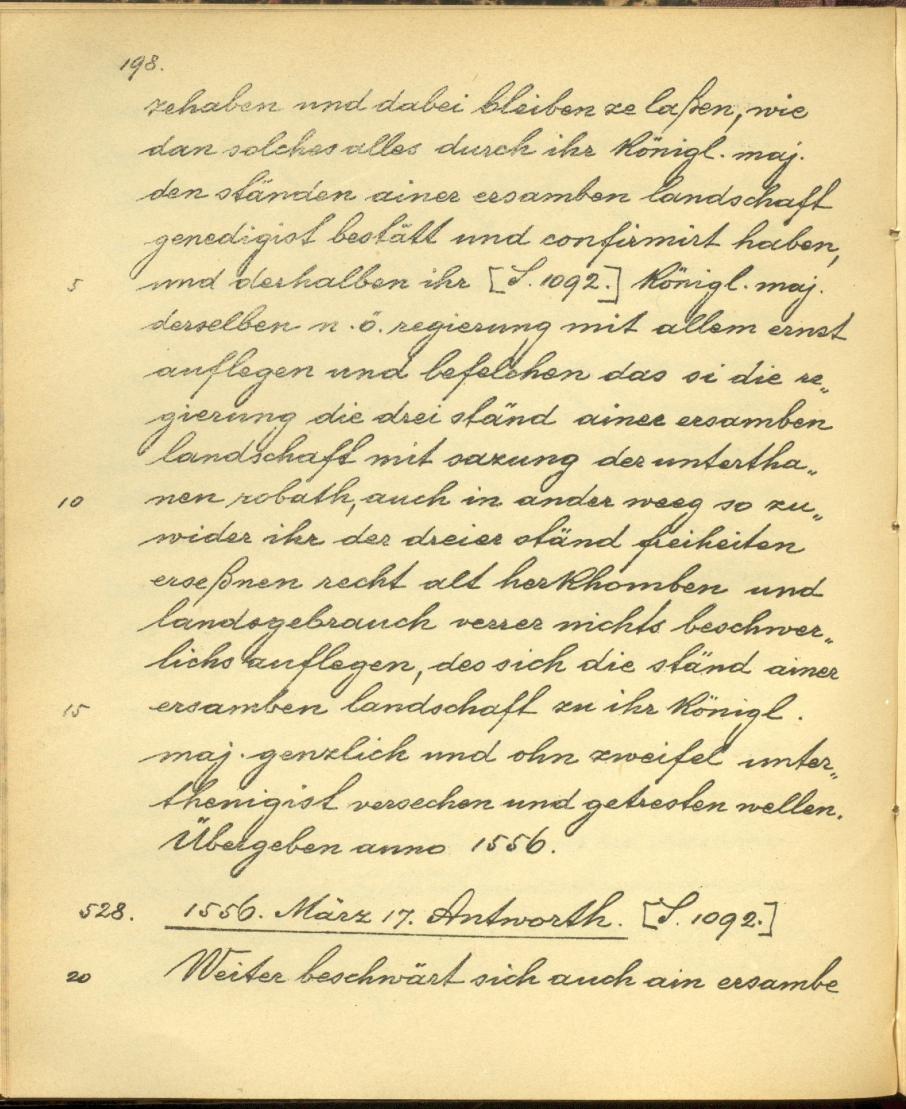 198.
zehaben und dabei bleiben ze laßen, wie
dan solches alles durch ihr königl. maj.
den ständen ainer ersamben landschaft
genedigist bestätt und confirmirt haben,
5 und derhalben ihr [S. 1092.] königl. maj.
derselben n. ö. regierung mit allem ernst
auflegen und befelchen das si die re„
gierung die drei ständ ainer ersamben
landschaft mit sazung der untertha„
10 nen robath, auch in ander weeg so zu„
wider ihr der dreier ständ freiheiten
erseßnen recht alt herkhomben und
landsgebrauch verrer nichts beschwer„
lichs auflegen, des sich die ständ ainer
15 ersamben landschaft zu ihr königl.
maj. genzlich und ohn zweifel unter„
thenigist versechen und getresten wellen.
Übergeben anno 1556.
528. 1556. März 17. Antworth. [S. 1092.]
20 Weiter beschwärt sich auch ain ersambe